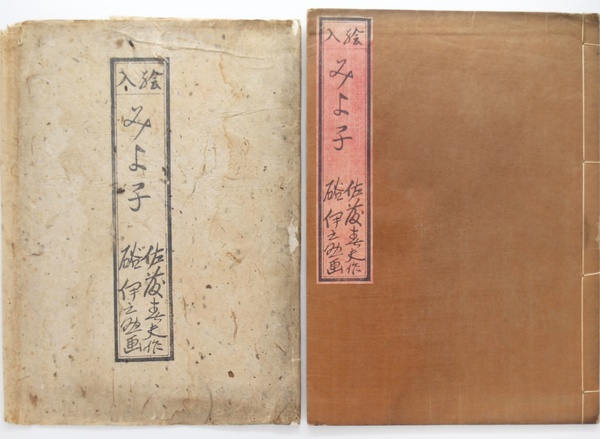 絵入
みよ子
佐藤春夫作
硲伊之助画
絵入
みよ子
佐藤春夫作
硲伊之助画